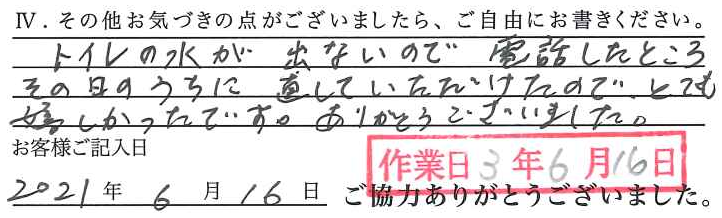 Ⅳ．その他お気づきの点がございましたら、ご自由にお書きください。
トイレの水が 出ないので 電話したところ
その日のうちに 直していただけたので、とても
嬉しかったです。ありがとうございました。
お客様ご記入日
作業日 3 年 6 月 16 日
2021 年 6 月 16 日 ご協力ありがとうございました。